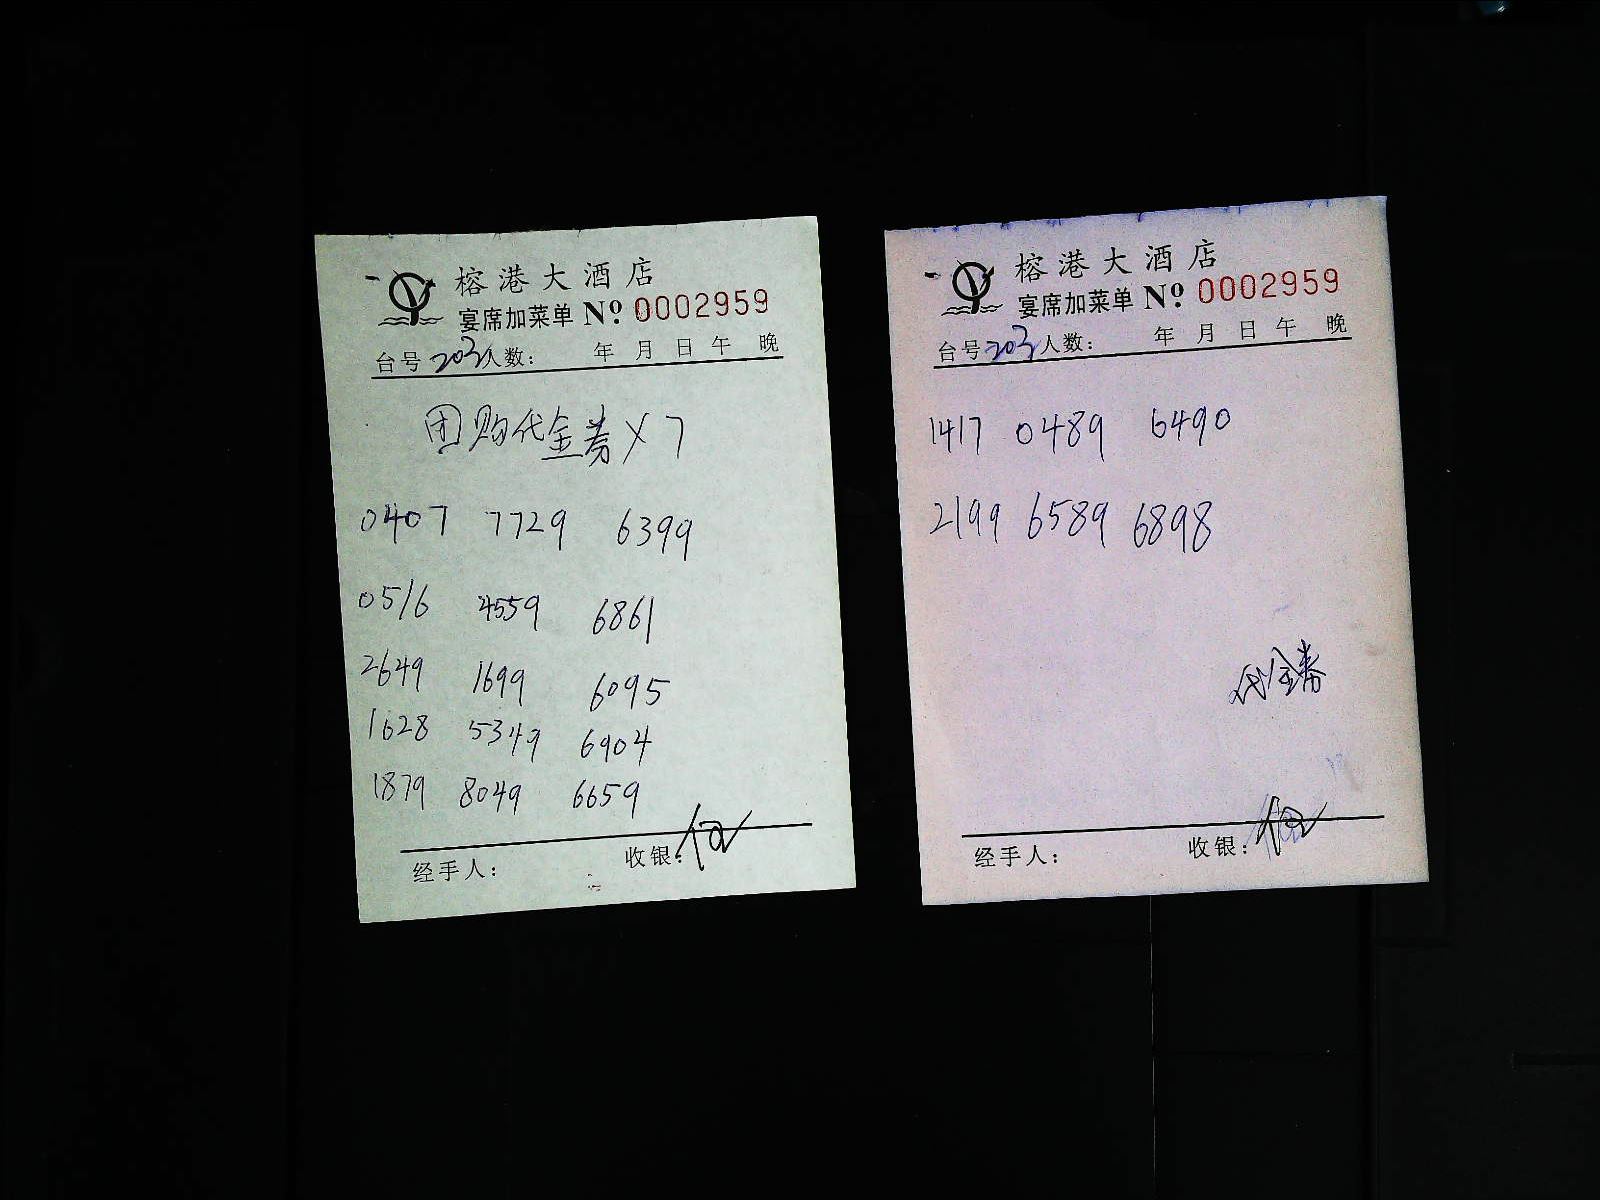 榕港大酒店
宴席加菜单 Nº 0002959
台号 203 人数： 年 月 日 午 晚
团购代金券 X 7
0407 7729 6399
0516 4559 6861
2649 1699 6095
1628 5349 6904
1879 8049 6659
经手人： 收银：
榕港大酒店
宴席加菜单 Nº 0002959
台号 203 人数： 年 月 日 午 晚
1417 0489 6490
2199 6589 6898
代金券
经手人： 收银：